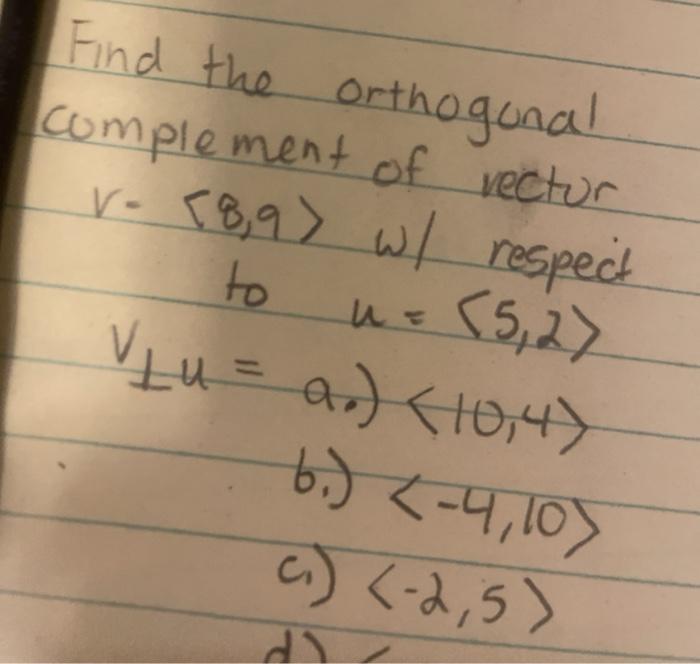 Find the orthogonal
complement of vector
v- <8,9> w/ respect
to u = <5,2>
V⊥u = a.) <10,4>
b.) <-4,10>
c.) <-2,5>
d) <